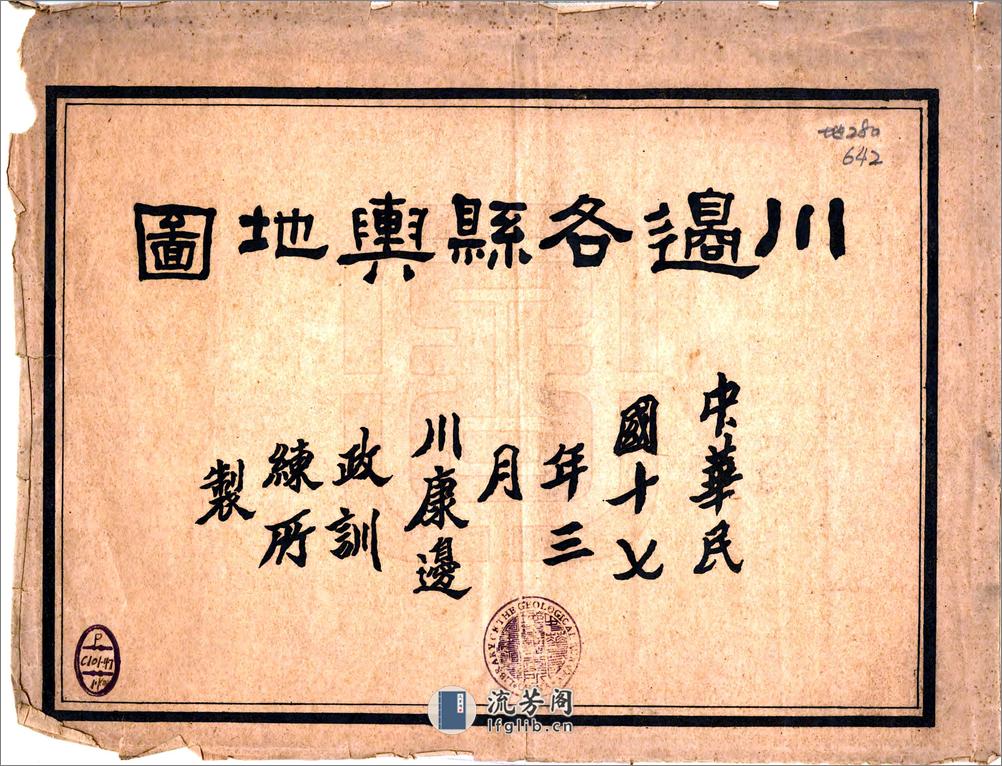 川邊各縣輿地圖
中華民
國十七
年三
月
川康邊
政訓
練所
製
地280
642
P
C101-47
LIBRARY OF THE GEOLOGICAL
流芳阁
lfglib.cn